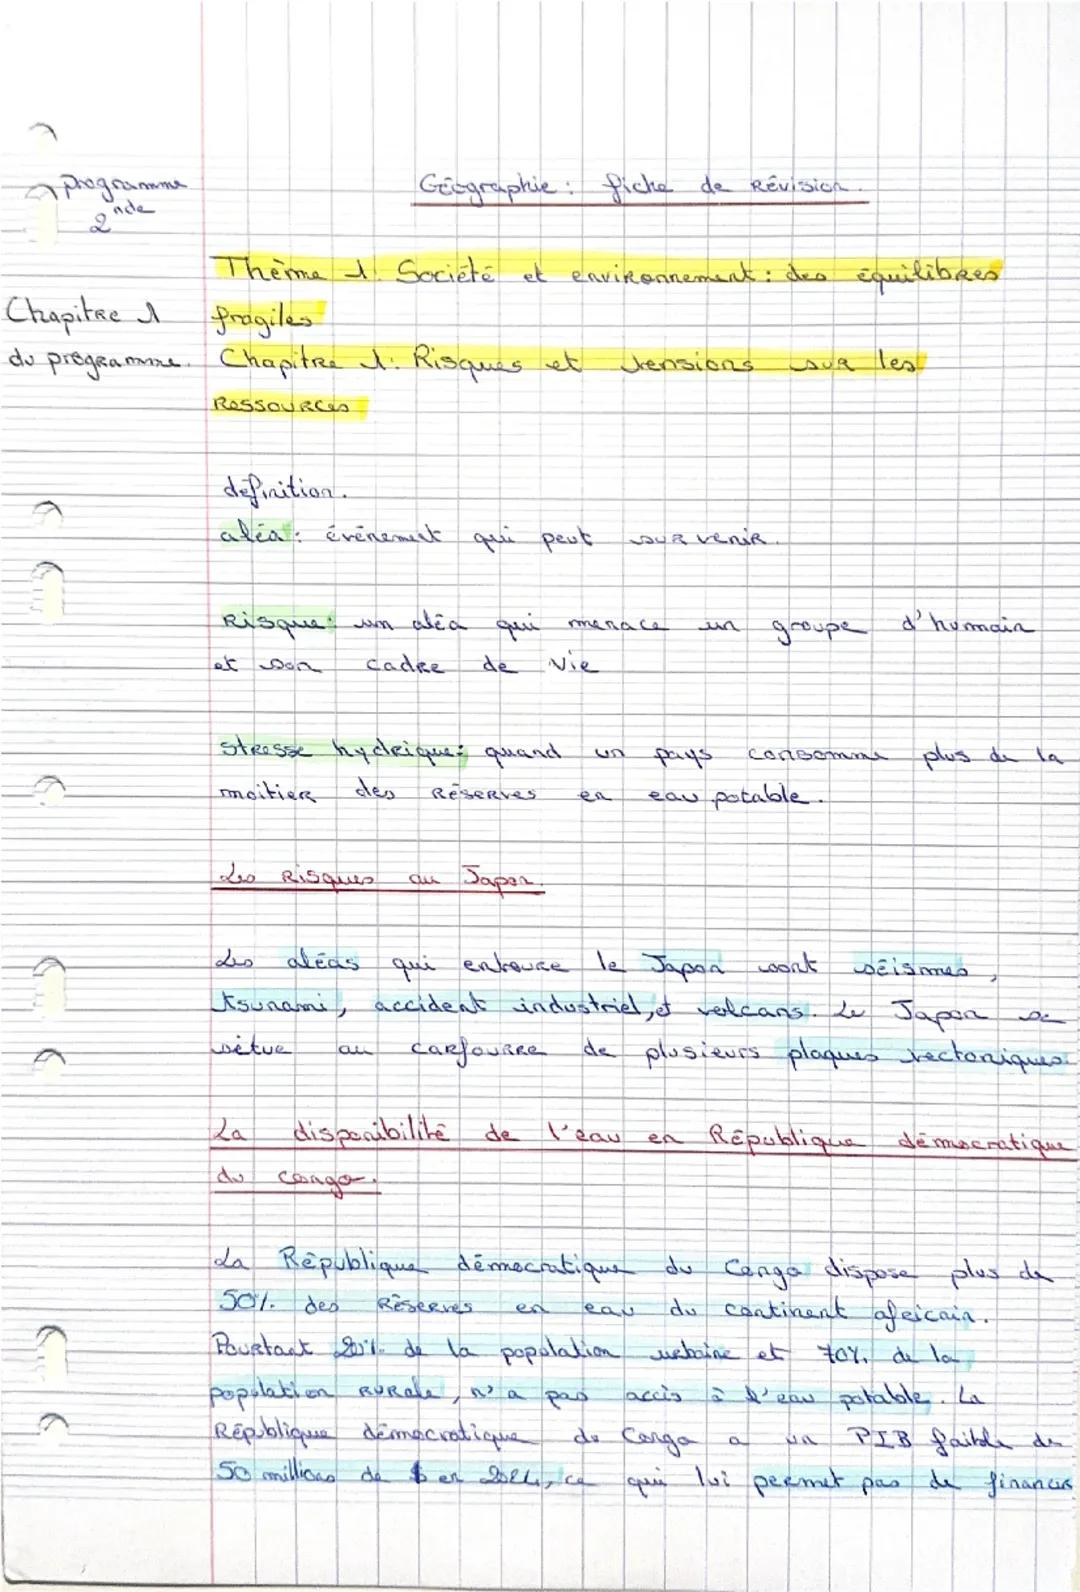 programme
2nde
Géographie : fiche de Révision.
Thème 1: Société et environnement : des équilibres
fragiles
Chapitre 1
du programme.
Chapitre 1: Risques et tensions sur les
Ressources
définition.
aléa : événement qui peut survenir.
Risque: un aléa qui menace un groupe d'humain
et son cadre de vie
stresse hydrique: quand un pays consomme plus de la
moitier des Réserves en eau potable.
Les Risques au Japon.
Les aléas qui entoure le Japon sont séismes,
tsunami, accident industriel, et volcans. Le Japon se
situe au carfourre de plusieurs plaques tectoniques.
La disponibilité de l'eau en République démocratique
du congo.
La République démocratique du Congo dispose plus de
50% des Réserves en eau du continent africain.
Pourtant 20% de la population urbaine et 70% de la
population Rurale, n'a pas accès à l'eau potable. La
République démocratique du Congo a un PIB faible de
50 millions de $ en, ce qui lui permet pas de financer